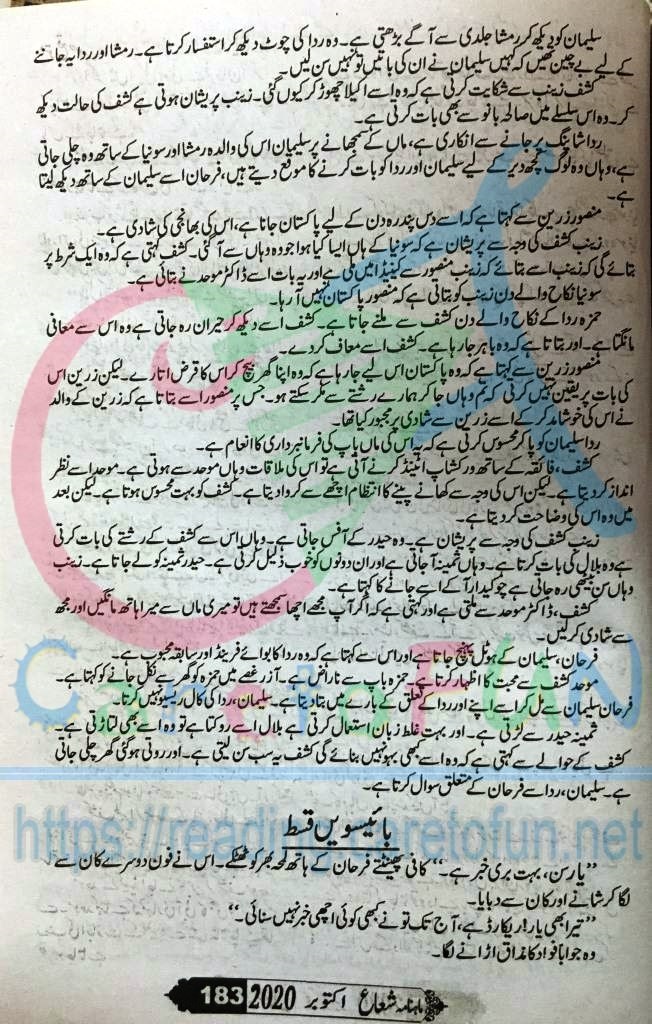 سلیمان کو دیکھ کر رمشا جلدی سے آگے بڑھتی ہے۔ وہ ردا کی چوٹ دیکھ کر استفسار کرتا ہے۔ رمشا اور ردا یہ جاننے
کے لیے بے چین تھیں کہ کہیں سلیمان نے ان کی باتیں تو نہیں سن لیں۔
کشف زینب سے شکایت کرتی ہے کہ وہ اسے اکیلا چھوڑ کر کیوں گئی۔ زینب پریشان ہوتی ہے کشف کی حالت دیکھ
کر۔ وہ اس سلسلے میں صالحہ بانو سے بھی بات کرتی ہے۔
ردا شاپنگ پر جانے سے انکاری ہے، ماں کے سمجھانے پر سلیمان اس کی والدہ رمشا اور سونیا کے ساتھ وہ چلی جاتی
ہے، وہاں وہ لوگ کچھ دیر کے لیے سلیمان اور ردا کو بات کرنے کا موقع دیتے ہیں، فرحان اسے سلیمان کے ساتھ دیکھ لیتا
ہے۔
منصور زرین سے کہتا ہے کہ اسے دس پندرہ دن کے لیے پاکستان جانا ہے، اس کی بھانجی کی شادی ہے۔
زینب کشف کی وجہ سے پریشان ہے کہ سونیا کے ہاں ایسا کیا ہوا جو وہ وہاں سے آ گئی۔ کشف کہتی ہے کہ وہ ایک شرط پر
بتائے گی کہ زینب اسے بتائے کہ زینب منصور سے کینیڈا میں ملی ہے اور یہ بات اسے ڈاکٹر موحد نے بتائی ہے۔
سونیا نکاح والے دن زینب کو بتاتی ہے کہ منصور پاکستان نہیں آ رہا۔
حمزہ ردا کے نکاح والے دن کشف سے ملنے جاتا ہے۔ کشف اسے دیکھ کر حیران رہ جاتی ہے وہ اس سے معافی
مانگتا ہے۔ اور بتاتا ہے کہ وہ باہر جا رہا ہے۔ کشف اسے معاف کر دے۔
منصور زرین سے کہتا ہے کہ وہ پاکستان اس لیے جا رہا ہے کہ وہ اپنا گھر بیچ کر اس کا قرض اتارے۔ لیکن زرین اس
کی بات پر یقین نہیں کرتی کہ تم وہاں جا کر ہمارے رشتے سے مکر سکتے ہو۔ جس پر منصور اسے بتاتا ہے کہ زرین کے والد
نے اس کی خوشامد کر کے اسے زرین سے شادی پر مجبور کیا تھا۔
ردا سلیمان کو پا کر محسوس کرتی ہے کہ یہ اس کی ماں باپ کی فرمانبرداری کا انعام ہے۔
کشف، فائقہ کے ساتھ ورکشاپ اٹینڈ کرنے آئی ہے تو اس کی ملاقات وہاں موحد سے ہوتی ہے۔ موحد اسے نظر
انداز کر دیتا ہے۔ لیکن اس کی وجہ سے کھانے پینے کا انتظام اچھے سے کروا دیتا ہے۔ کشف کو بہت محسوس ہوتا ہے۔ لیکن بعد
میں وہ اس کی وضاحت کر دیتا ہے۔
زینب کشف کی وجہ سے پریشان ہے۔ وہ حیدر کے آفس جاتی ہے۔ وہاں اس سے کشف کے رشتے کی بات کرتی
ہے وہ بلال کی بات کرتا ہے۔ وہاں ثمینہ آ جاتی ہے اور ان دونوں کو خوب ذلیل کرتی ہے۔ حیدر ثمینہ کو لے جاتا ہے۔ زینب
وہاں سن بیٹھی رہ جاتی ہے چوکیدار آ کے اسے جانے کا کہتا ہے۔
کشف، ڈاکٹر موحد سے ملتی ہے اور کہتی ہے کہ اگر آپ مجھے اچھا سمجھتے ہیں تو میری ماں سے میرا ہاتھ مانگیں اور مجھ
سے شادی کر لیں۔
فرحان، سلیمان کے ہوٹل پہنچ جاتا ہے اور اس سے کہتا ہے کہ وہ ردا کا بوائے فرینڈ اور سابقہ محبوب ہے۔
موحد کشف سے محبت کا اظہار کرتا ہے۔ حمزہ باپ سے ناراض ہے۔ آزر غصے میں حمزہ کو گھر سے نکل جانے کو کہتا ہے۔
فرحان سلیمان سے مل کر اسے اپنے اور ردا کے تعلق کے بارے میں بتا دیتا ہے۔ سلیمان، ردا کی کال ریسیو نہیں کرتا۔
ثمینہ حیدر سے لڑتی ہے۔ اور بہت غلط زبان استعمال کرتی ہے بلال اسے روکتا ہے تو وہ اسے بھی لتاڑتی ہے۔
کشف کے حوالے سے کہتی ہے کہ وہ اسے کبھی بہو نہیں بنائے گی کشف یہ سب سن لیتی ہے۔ اور روتی ہوئی گھر چلی جاتی
ہے۔ سلیمان، ردا سے فرحان کے متعلق سوال کرتا ہے۔
بائیسویں قسط
”یار سن، بہت بری خبر ہے۔“ کافی پھینٹتے فرحان کے ہاتھ لمحہ بھر کو ٹھٹکے۔ اس نے فون دوسرے کان سے
لگا کر شانے اور کان سے دبایا۔
”تیرا بھی یار! ریکارڈ ہے، آج تک تو نے کبھی کوئی اچھی خبر نہیں سنائی۔“
وہ جوابا فواد کا مذاق اڑانے لگا۔
ماہنامہ شعاع اکتوبر 2020 183
CaretoFUN
https://reading.caretofun.net